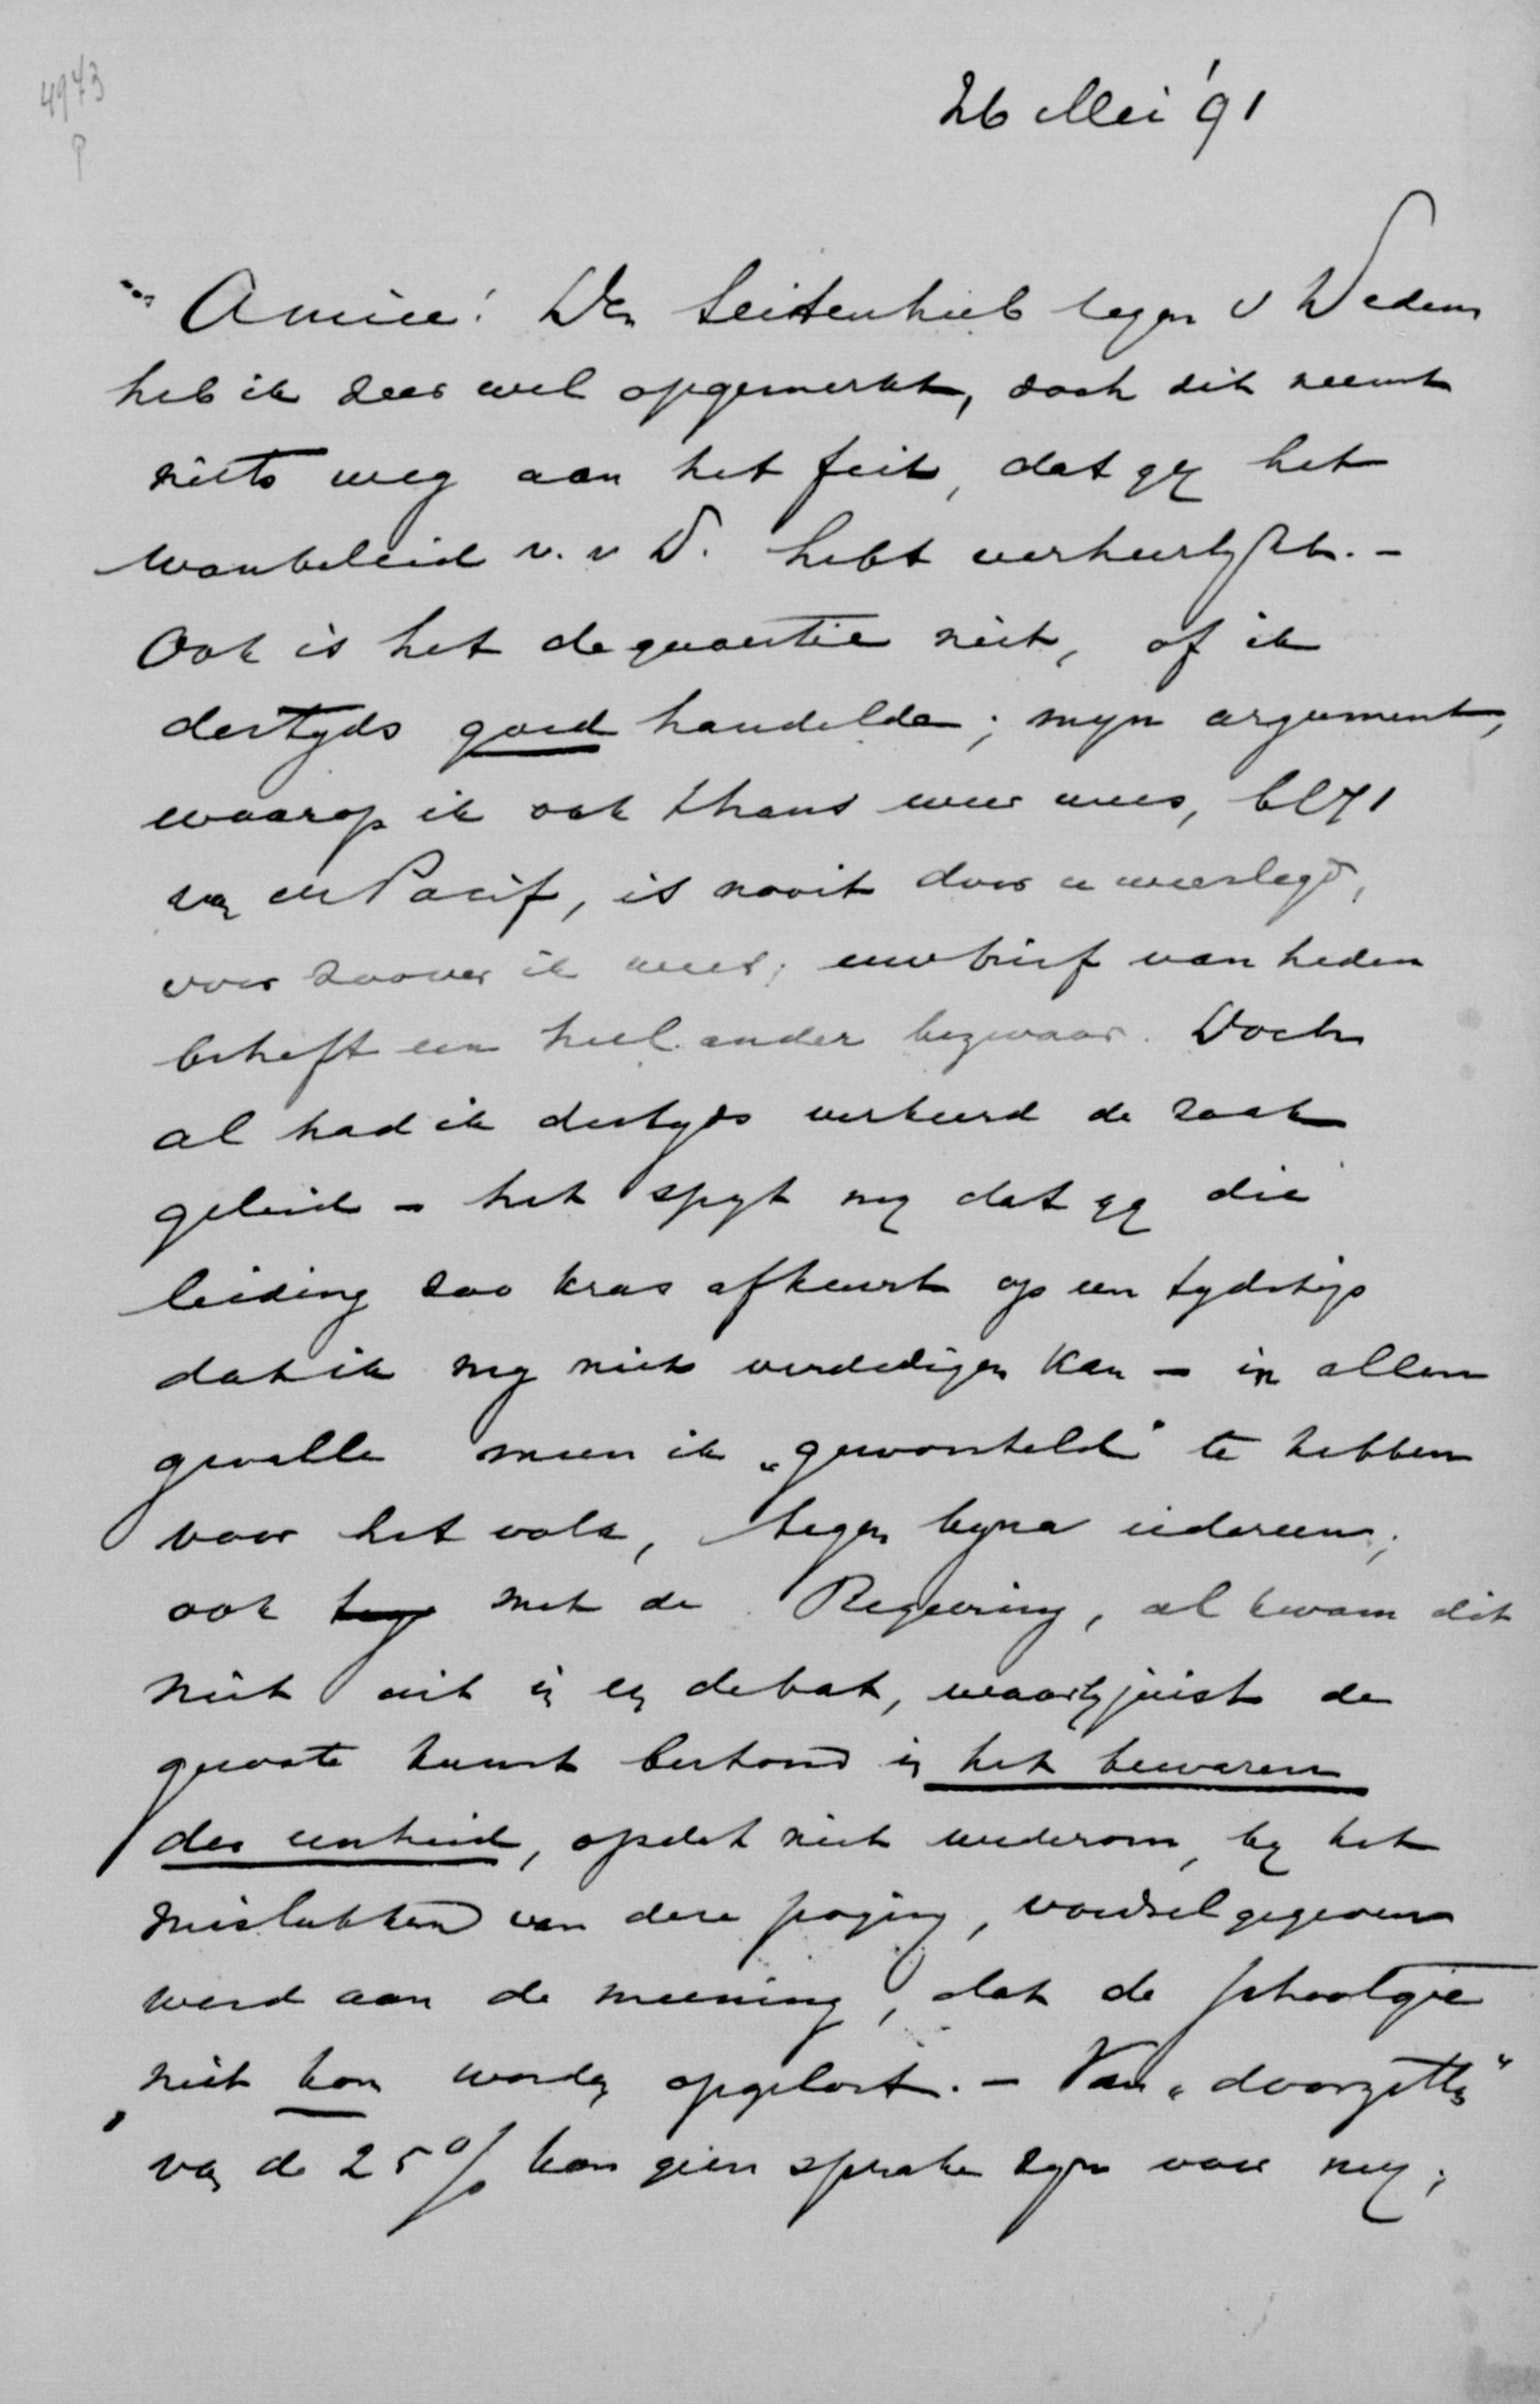 4973
P
26 Mei '91
Amice! Den Seitenhieb tegen v Dedem
heb ik zeer wel opgemerkt, doch dit neemt
niets weg aan het feit, dat gy het
wanbeleid v. v D. hebt verheerlykt. -
Ook is het de quaestie niet, of ik
destyds goed handelde; myn argument,
waarop ik ook thans weer wees, blz 1
van de Pacif, is nooit door u weerlegd,
voor zoover ik weet; uw brief van heden
behelst een heel ander bezwaar. Doch
al had ik destyds verkeerd de zaak
geleid - het spyt my dat gy die
leiding zoo kras afkeurt op een tydstip
dat ik my niet verdedigen kan - in allen
gevalle meen ik „geworsteld" te hebben
voor het volk, tegen byna iedereen;
ook tege met de Regeering, al kwam dit
niet uit in een debat, waarby juist de
grootste kunst bestond in het bewaren
der eenheid, opdat niet wederom, by het
mislukken van deze poging, voedsel gegeven
werd aan de meening, dat de schoolqie
niet kon worden opgelost. - Van „doorzetten"
van de 25% kon geen sprake zyn voor my;